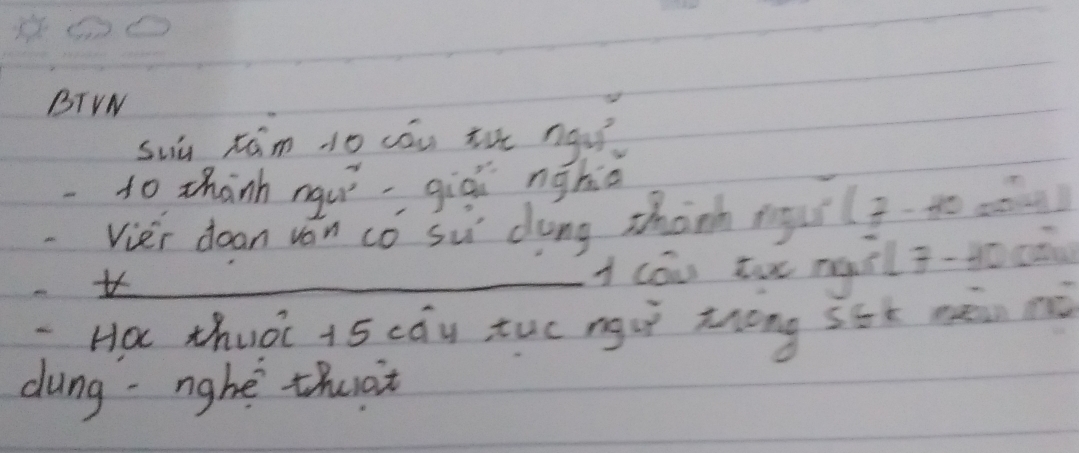 BTVN
sưu tầm 10 câu tục ngữ
- 10 thành ngữ - giải nghĩa
- Viết đoạn văn có sử dụng thành ngữ (7 - 10 câu)
- 1 câu tục ngữ (7 - 10 câu
- Học thuộc 15 câu tục ngữ trong sgk nêu nội
dung - nghệ thuật